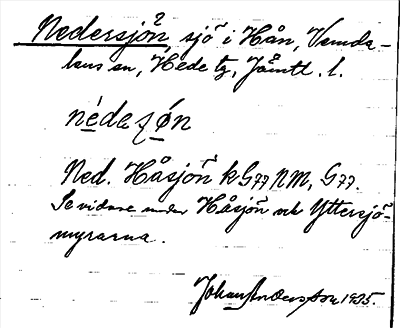 Nedersjön² sjö i Hån, Vemda-
lens sn, Hede tg, Jämtl. l.
nédeʃøn
Ned. Håsjön k G77 NM, G77.
Se vidare under Håsjön och Yttersjö-
myrarna.
Johan Andersson 1925.